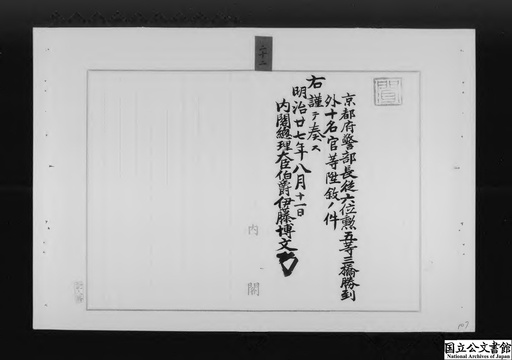 京都府警部長従六位勲五等三橋勝到
外十名官等陞敍ノ件
右謹テ奏ス
明治廿七年八月十一日
内閣總理大臣伯爵伊藤博文
内閣
107
国立公文書館
National Archives of Japan